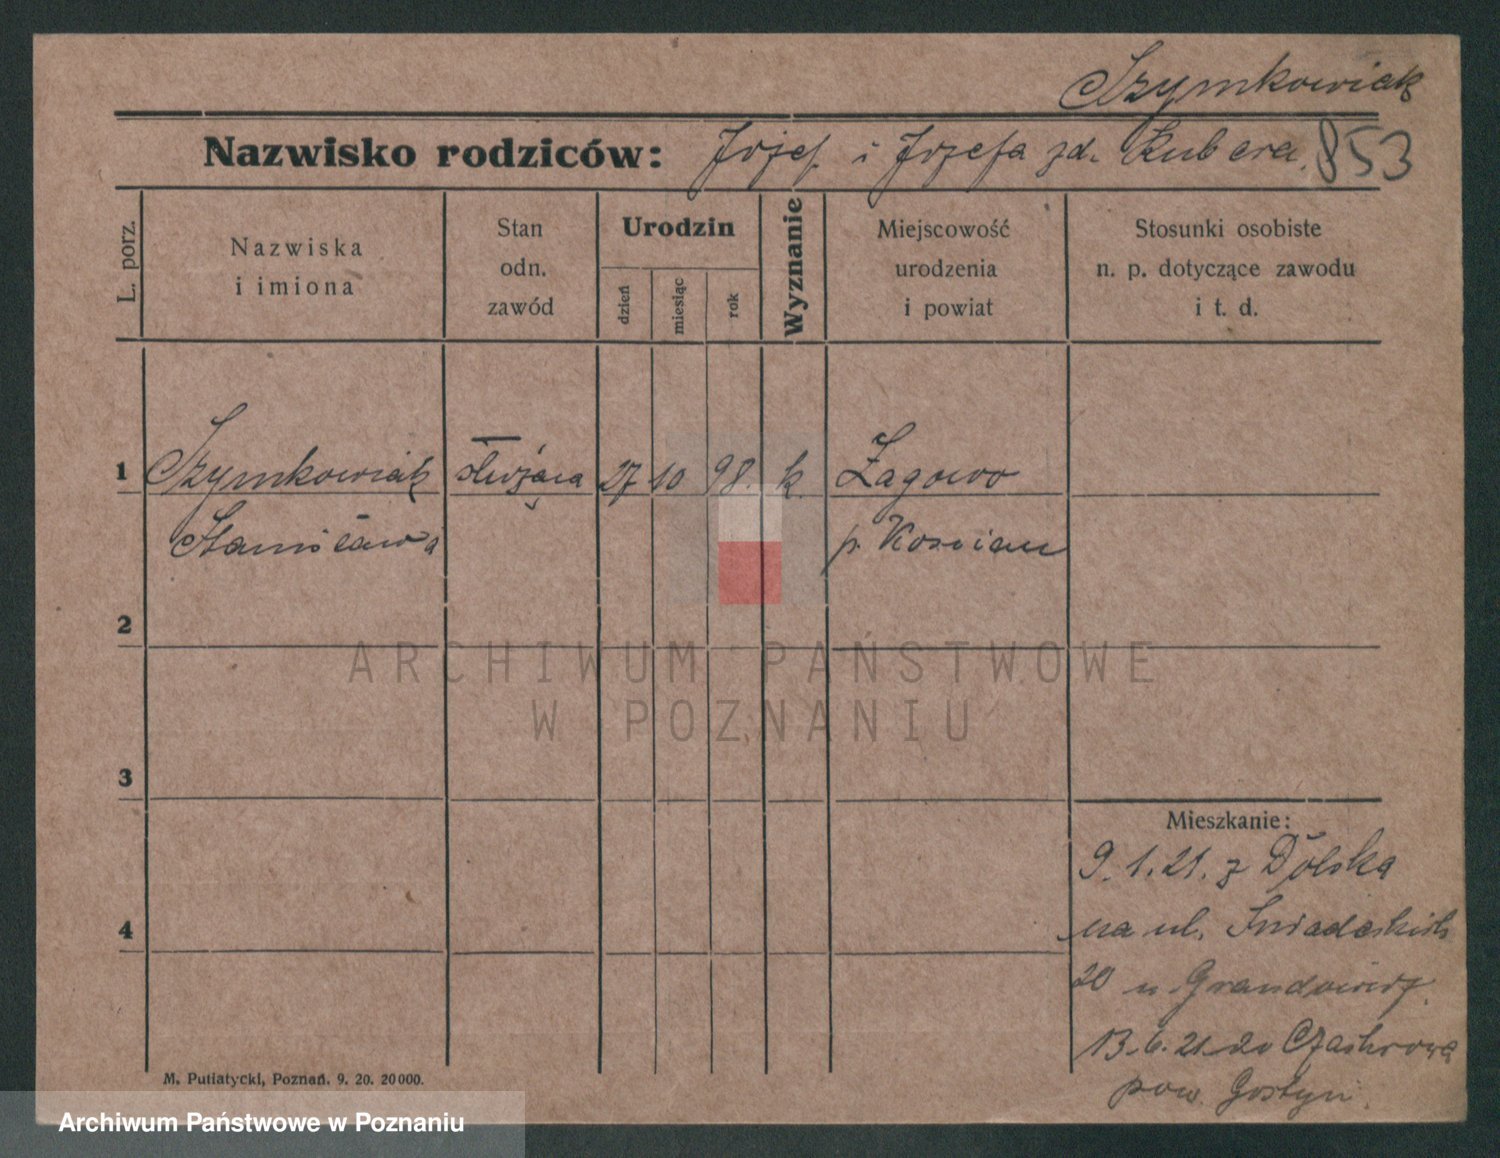 Szymkowiak
Nazwisko rodziców: Józef i Józefa zd. Kubera 853
L. porz.
Nazwiska
i imiona
Stan
odn.
zawód
Urodzin
dzień
miesiąc
rok
Wyznanie
Miejscowość
urodzenia
i powiat
Stosunki osobiste
n. p. dotyczące zawodu
i t. d.
1 Szymkowiak służąca 27 10 98. k. Żagowo
Stanisława p. Kościan
2
3
4
ARCHIWUM PAŃSTWOWE
W POZNANIU
Mieszkanie:
9.1.21. z Dolska
na ul. Śniadeckich
20 u
13.6.21 do
pow. Gostyń.
M. Putiatycki, Poznań. 9. 20. 20000.
Archiwum Państwowe w Poznaniu